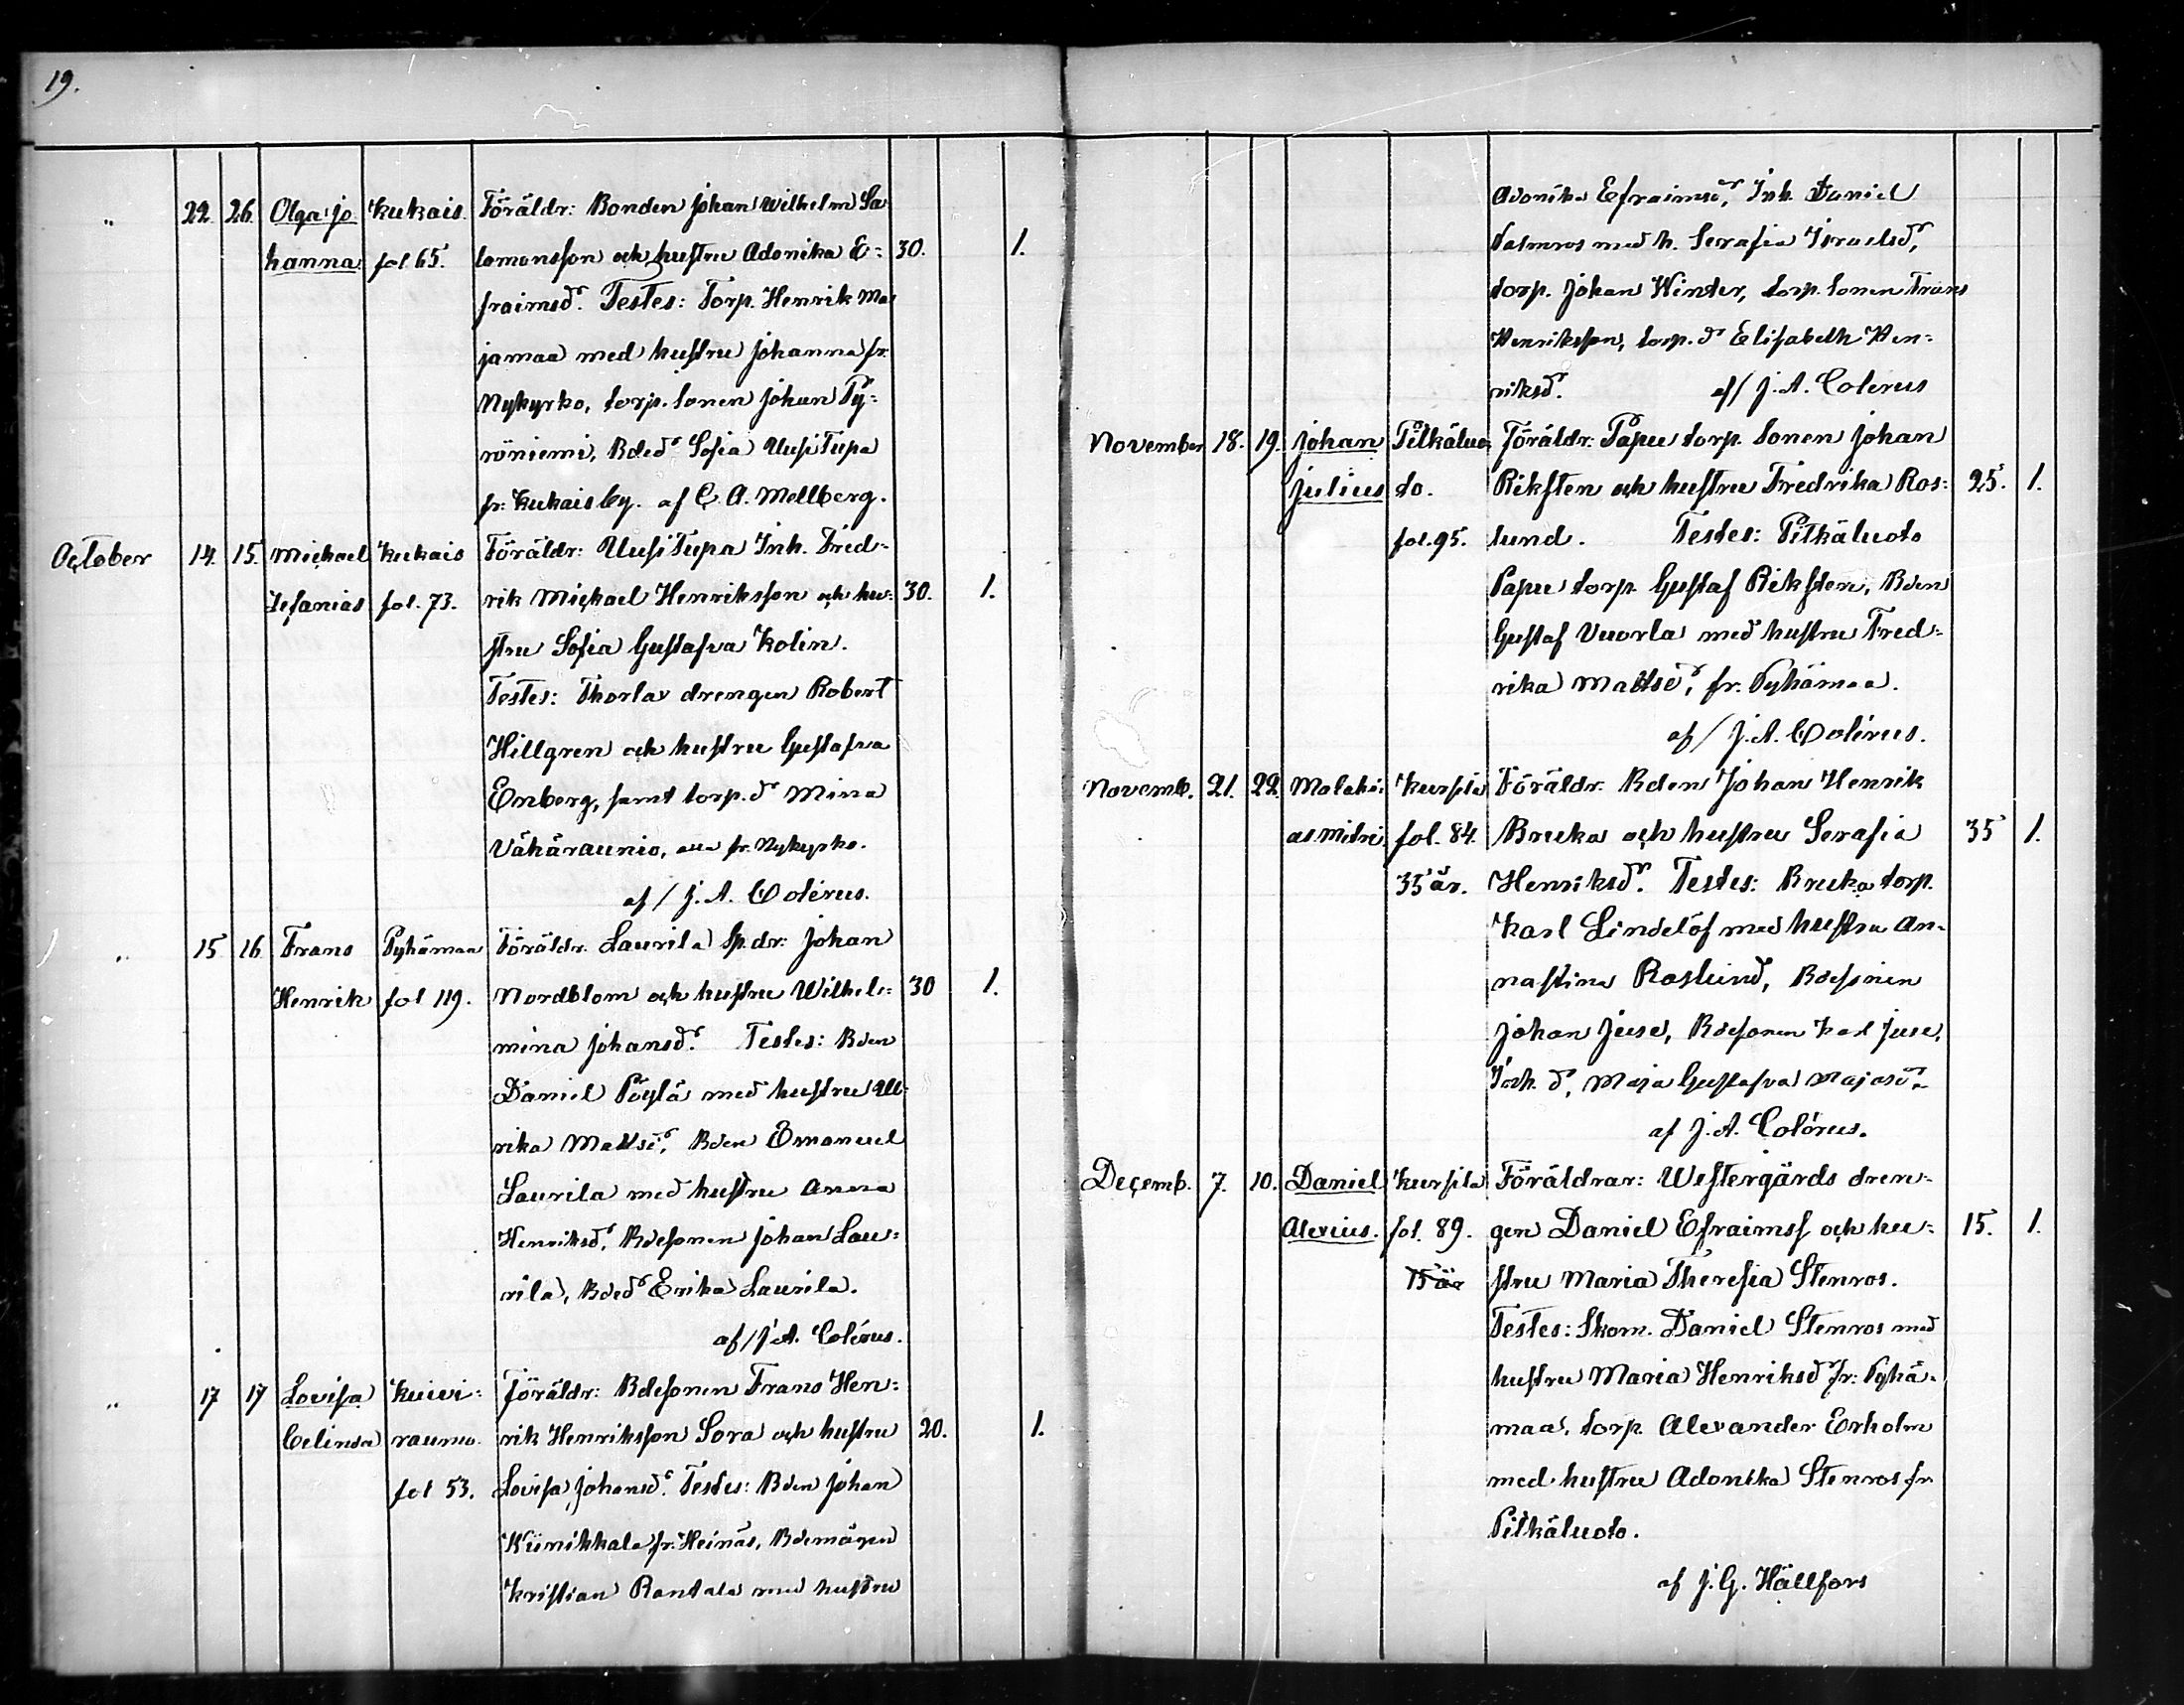 19.
" 22. 26. Olga Jo Kukais Föräldr: Bonden Johan Wilhelm Sa
hanna fol 65. lomonsson och hustru Adonika E= 30. 1.
fraimsdr. Testes: Torp. Henrik Ma
jamaa med hustru Johanna fr.
Nykyrko, torp. sonen Johan Py=
röniemi, Bdedr Sofia UusiTupa
fr. Kukais by. af C. A. Mellberg.
October 14. 15. Michael Kukais Föräldr: UusiTupa Inh. Fred=
Sefanias fol. 73. rik Michael Henriksson och hu= 30. 1.
stru Sofia Gustafva Kolin.
Testes: Thorla drengen Robert
Hillgren och hustru Gustafva
Enberg, samt torp. dr Mina
Vähäraunio, alla fr. Nykyrko.
af / J. A. Colérus.
" 15 16 Frans Pyhämaa Föräldr. Laurila Sp. dr: Johan
Henrik fol 119. Nordblom och hustru Wilhel= 30 1.
mina Johansdr. Testes: Bden
Daniel Pöylä med hustru Ul=
rika Mattsdr, Bden Emanuel
Laurila med hustru Anna
Henriksdr, Bdesonen Johan Lau=
rila, Bdedr Erika Laurila.
af / J. A. Colérus.
" 17 17 Lovisa Kuivi= Föräldr: Bdesonen Frans Hen=
Celinda raumo. rik Henriksson Sora och hustru 20. 1.
fol 53. Lovisa Johansdr. Testes: Bden Johan
Kiinikkala fr. Heinäs, Bdemågen
Kristian Rantala med hustru
Adonika Efraimsdr, Inh. Daniel
Salmros med h. Serafia Israelsdr,
torp. Johan Winter, torp. sonen Frans
Henriksson, torp. dr Elisabeth Hen=
riksdr. af / J. A. Colerus
November 18. 19. Johan Pitkäluo Föräldr: Papu torp. sonen Johan
Julius to. Riksten och hustru Fredrika Ros= 25. 1.
fol. 95. lund. Testes: Pitkäluoto
Papu torp. Gustaf Riksten, Bden
Gustaf Vuorla med hustru Fred=
rika Mattsdr, fr. Pyhämaa.
af / J. A. Colérus.
Novemb. 21. 22. Malaki= Kursila Föräldr. Bden Johan Henrik
as Mitri fol. 84. Bruka och hustru Serafia 35 1.
35 år. Henriksdr. Testes: Bruka torp.
Karl Lindelöf med hustru An=
nastina Roslund, Bdesonen
Johan Juse, Bdesonen Karl Juse,
Inh. dr, Maja Gustafva Majasdr.
af J. A. Colérus.
Decemb. 7. 10. Daniel Kursila Föräldrar: Westergårds dren=
Alexius. fol. 89. gen Daniel Efraimss och hu= 15. 1.
15 år stru Maria Theresia Stenros.
Testes: Skom. Daniel Stenros med
hustru Maria Henriksdr fr. Pyhä=
maa, torp. Alexander Erholm
med hustru Adonika Stenros fr.
Pitkäluoto.
af J. G. Hällfors